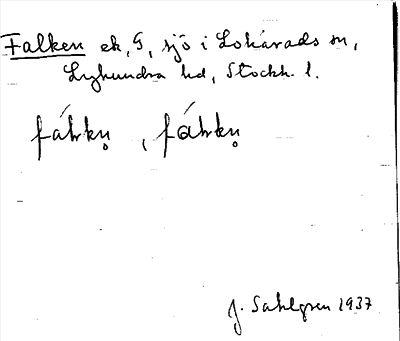 Falken ek. G, sjö i Lohärads sn,
Lyhundra hd, Stockh. l.
fáłkņ̥, fɑ́łkņ̥
J. Sahlgren 1937